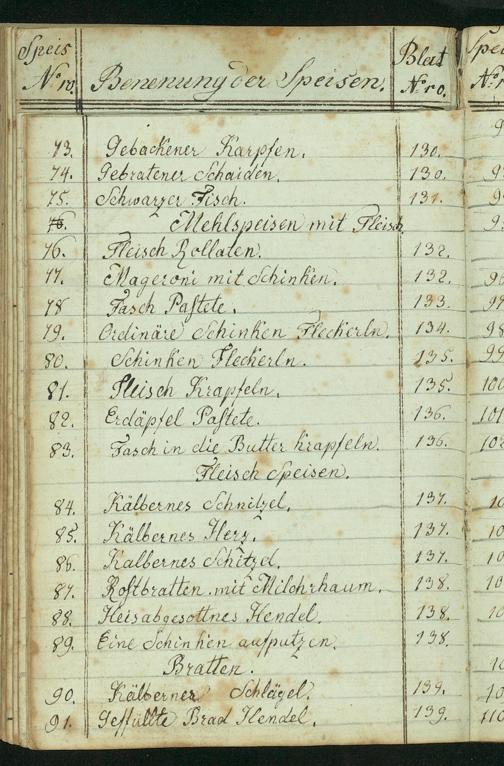 Speis Nro. Benenung der Speisen. Blat Nro.
73. Gebackener Karpfen. 130.
74. Gebratener Schaiden. 130.
75. Schwarzer Fisch. 131.
76. Mehlspeisen mit Fleisch
76. Fleisch Rollaten. 132.
77. Mageroni mit Schinken. 132.
78 Fasch Pastete. 133.
79. Ordinäre Schinken Fleckerln. 134.
80. Schinken Fleckerln. 135.
81. Fleisch Krapfeln. 135.
82. Erdäpfel Pastete. 136.
83. Fasch in die Butter krapfeln. 136.
Fleisch Speisen.
84. Kälbernes Schnitzel. 137.
85. Kälbernes Herz. 137.
86. Kalbernes Schitzd. 137.
87. Rostbratten mit Milchrhaum. 138.
88. Heisabgesottnes Hendel. 138.
89. Eine Schinken aufputzen. 138.
Bratten.
90. Kälberner Schlägel. 139.
91. Gefüllte Brad Hendel. 139.